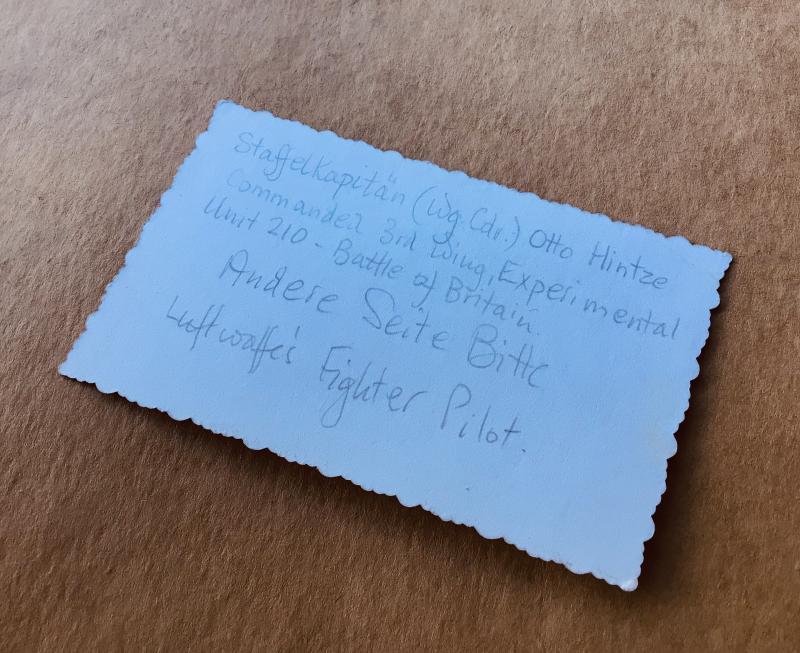 Staffelkapitän (Wg.Cdr.) Otto Hintze
Commander 3rd Wing, Experimental
Unit 210 - Battle of Britain.
Andere Seite Bitte
Luftwaffe's Fighter Pilot.